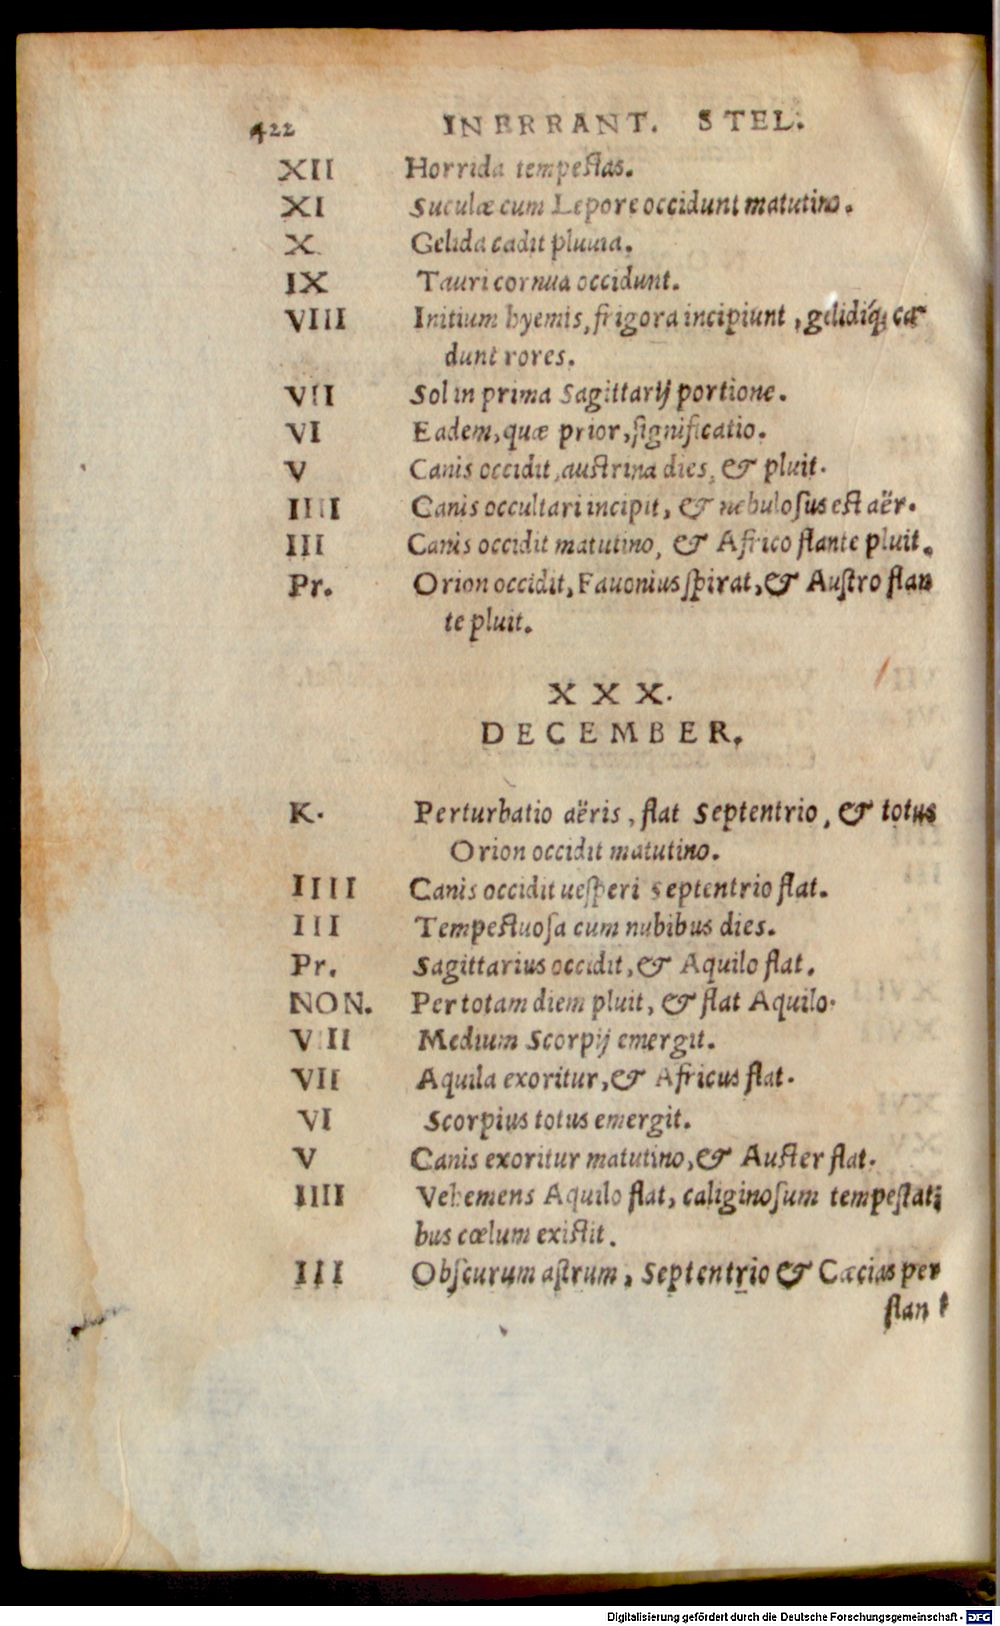 422 INERRANT. STEL.
XII Horrida tempestas.
XI Suculæ cum Lepore occidunt matutino.
X Gelida cadit pluuia.
IX Tauri cornua occidunt.
VIII Initium hyemis, frigora incipiunt, gelidíq; ca-
dunt rores.
VII Sol in prima Sagittarij portione.
VI Eadem, quæ prior, significatio.
V Canis occidit, austrina dies, & pluit.
IIII Canis occultari incipit, & nebulosus est aër.
III Canis occidit matutino, & Africo flante pluit.
Pr. Orion occidit, Fauonius spirat, & Austro flan
te pluit.
XXX.
DECEMBER.
K. Perturbatio aëris, flat Septentrio, & totus
Orion occidit matutino.
IIII Canis occidit uesperi Septentrio flat.
III Tempestuosa cum nubibus dies.
Pr. Sagittarius occidit, & Aquilo flat.
NON. Per totam diem pluit, & flat Aquilo.
VIII Medium Scorpij emergit.
VII Aquila exoritur, & Africus flat.
VI Scorpius totus emergit.
V Canis exoritur matutino, & Auster flat.
IIII Vehemens Aquilo flat, caliginosum tempestati
bus cœlum existit.
III Obscurum astrum, Septentrio & Cæcias per
flan
Digitalisierung gefördert durch die Deutsche Forschungsgemeinschaft - DFG